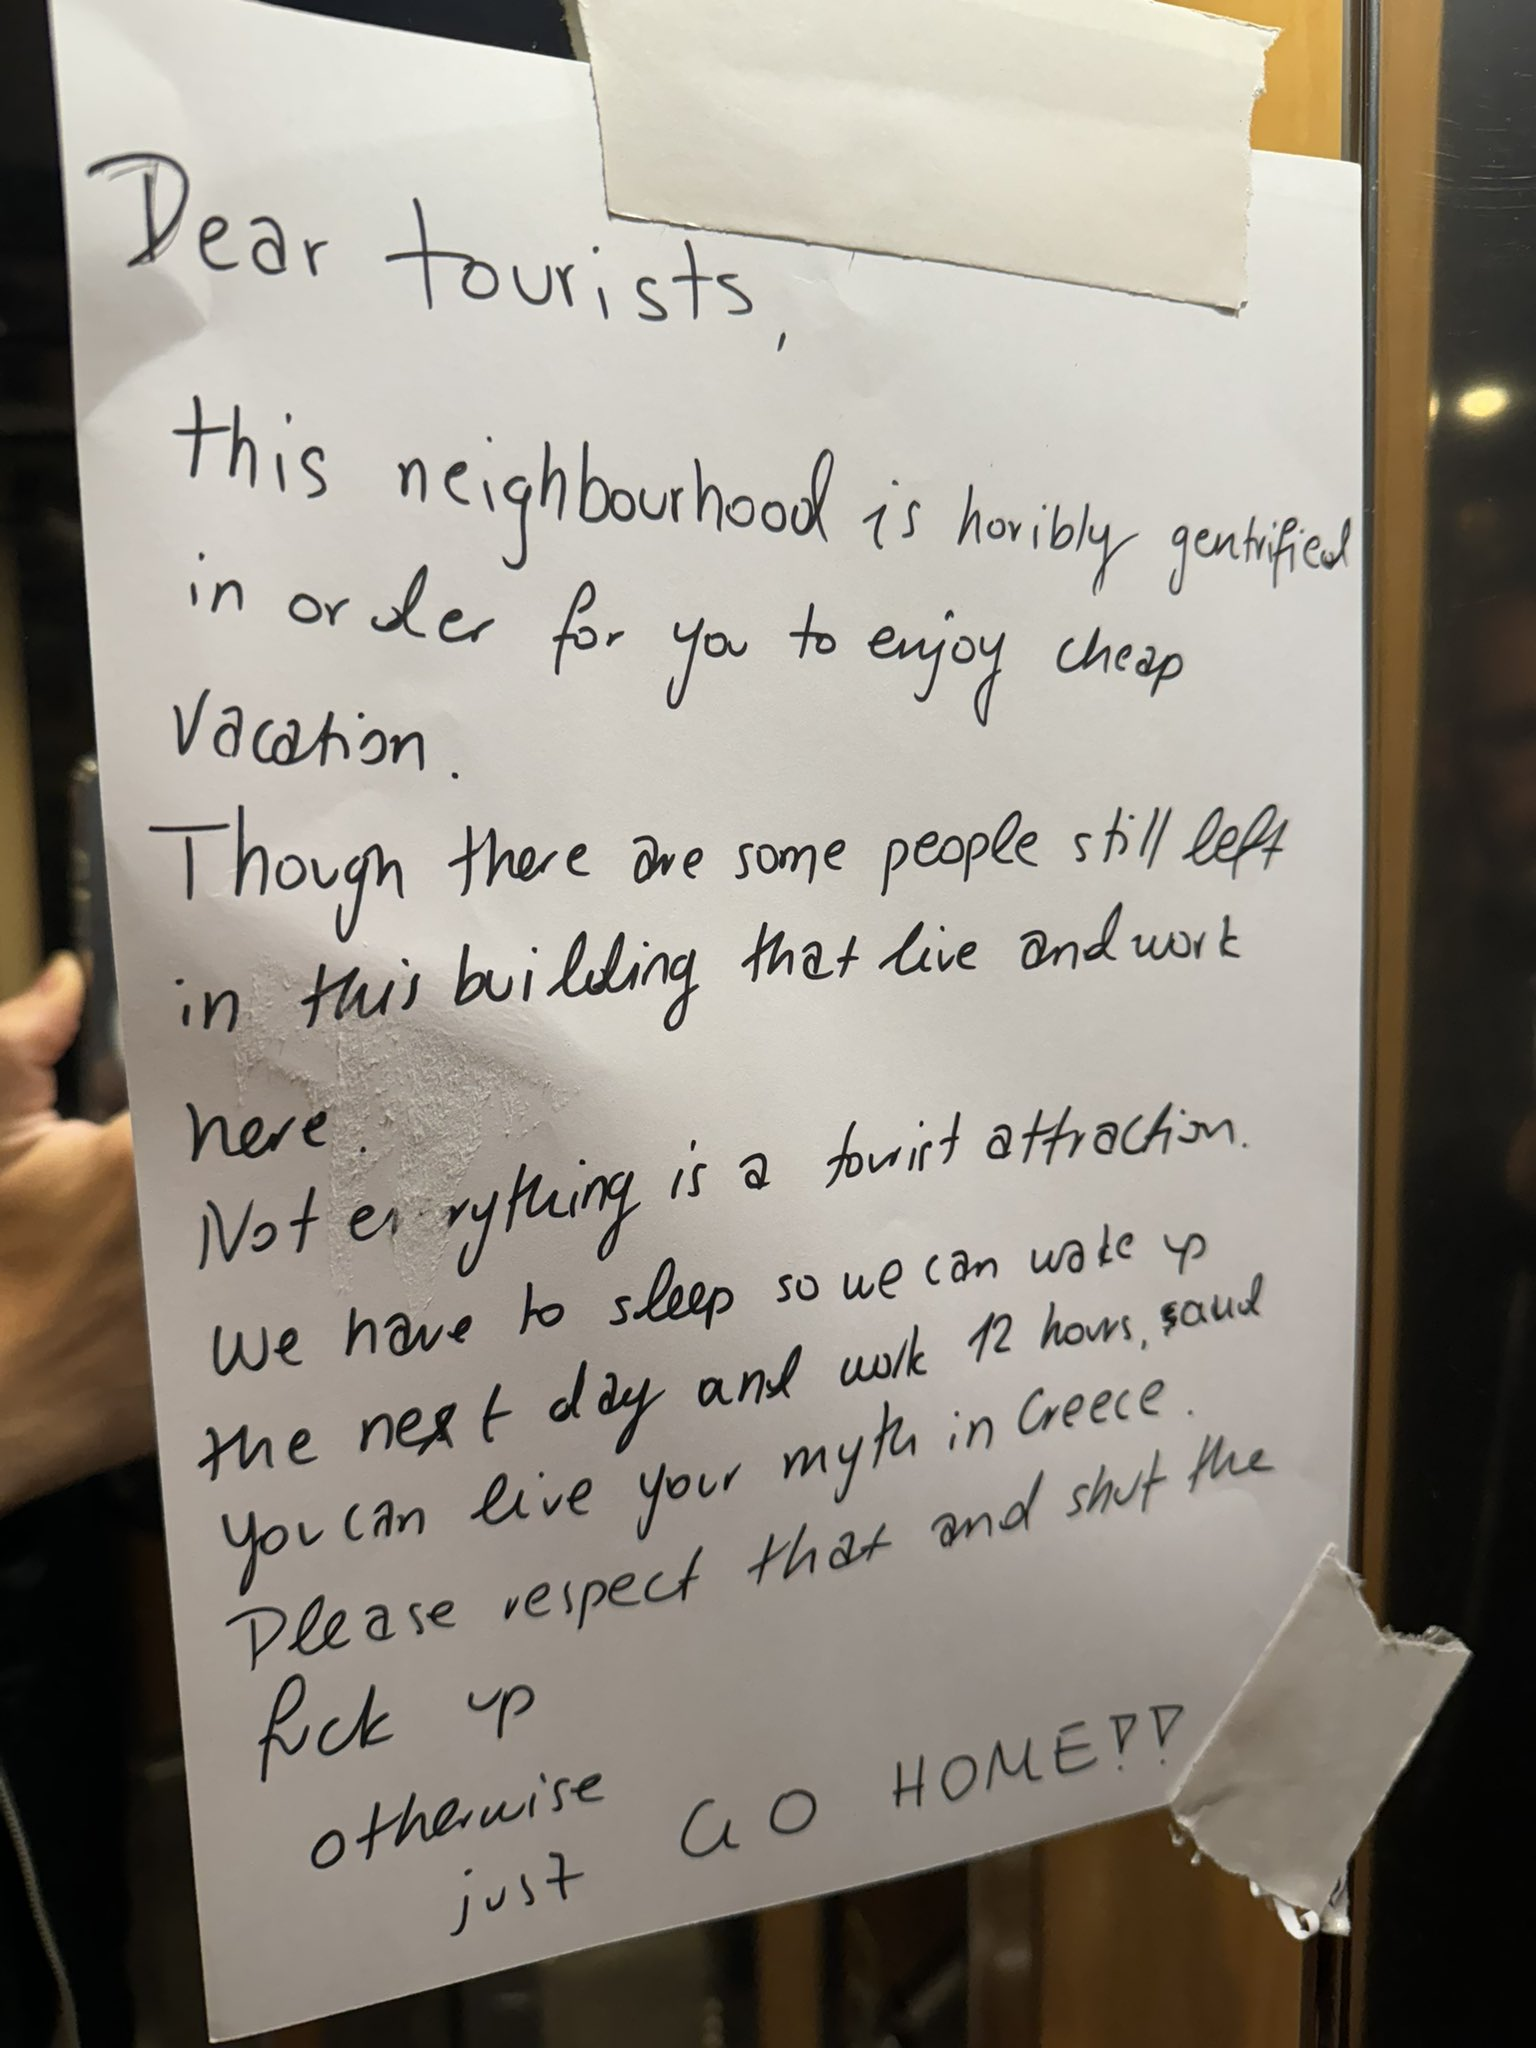 Dear tourists,
this neighbourhood is horibly gentrified
in order for you to enjoy cheap
vacation.
Though there are some people still left
in this building that live and work
here.
Not everything is a tourist attraction.
We have to sleep so we can wake up
the next day and work 12 hours, and
you can live your myth in Greece.
Please respect that and shut the
fuck up
otherwise
just GO HOME!!